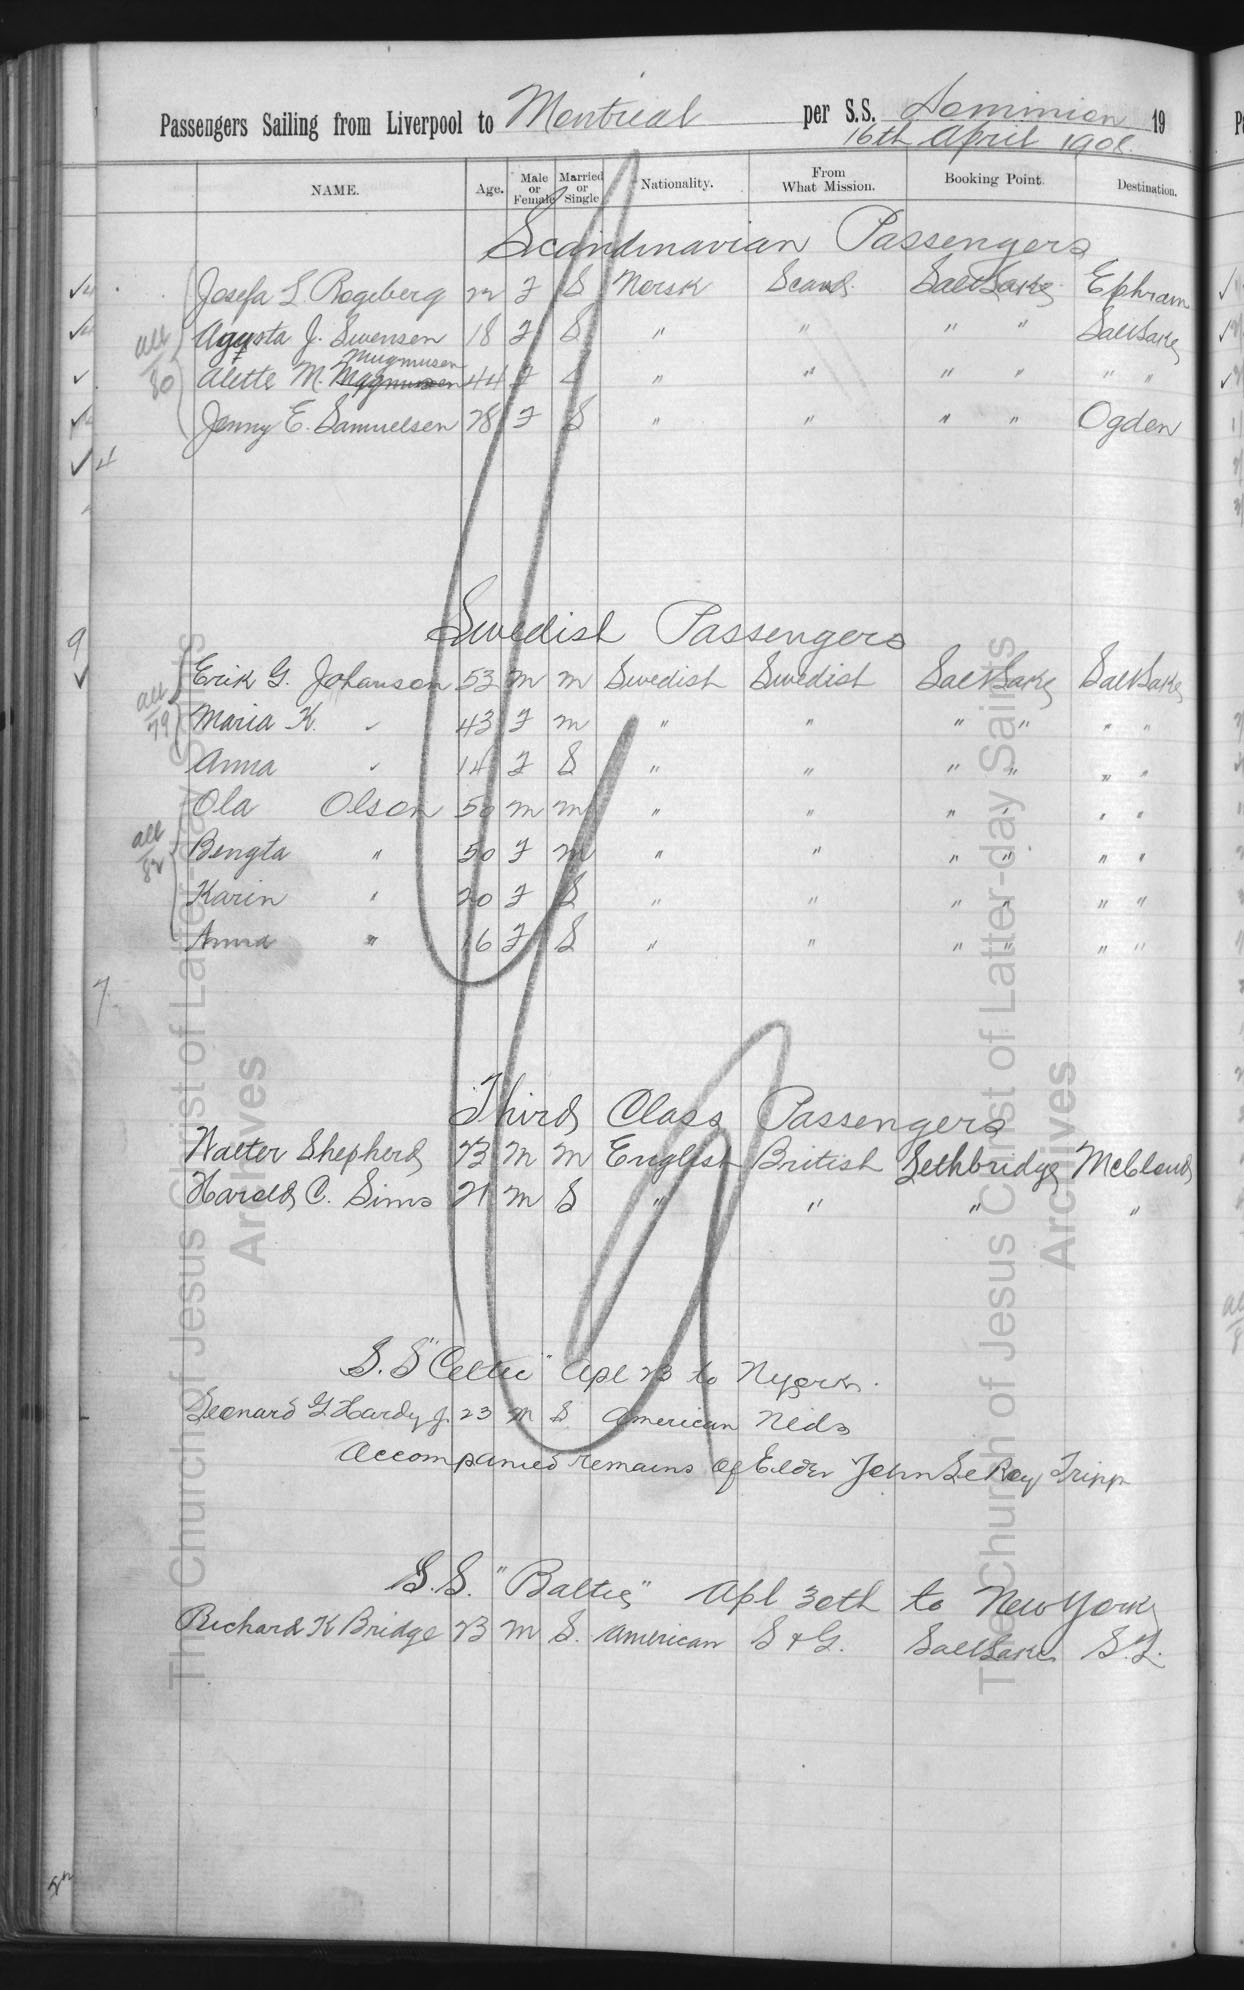 Passengers Sailing from Liverpool to Montreal per S.S. Dominion 19
16th April 1908.
NAME. Age. Male or Female Married or Single Nationality. From What Mission. Booking Point. Destination.
Scandinavian Passengers
Josefa L. Rogeberg 22 F S Norsk Scand. Salt Lake Ephraim
Agusta J. Swensen 18 F S " " " " Salt Lake
all
80
Mugmusen
Alette M. 44 F S " " " " " "
Jenny E. Samuelsen 28 F S " " " " Ogden
4
Swedish Passengers
9
Erik G. Johanson 53 m m Swedish Swedish Salt Lake Salt Lake
all
79
Maria K. " 43 F m " " " " " "
Anna " 14 F S " " " " " "
Ola Olson 50 m m " " " " " "
all
82
Bengta " 50 F m " " " " " "
Karin " 20 F S " " " " " "
Anna " 16 F S " " " " " "
7
Third Class Passengers
Walter Shepherd 23 m m English British Lethbridge McCloud
Harold C. Sims 21 m S " " " "
S.S "Celtic" Apl 23 to N york.
Leonard G Hardy Jr. 23 m S American Neds
Accompanied remains of Elder John Le Roy Tripp
S.S. "Baltic" Apl 30th to New York
Richard K Bridge 23 m S. American S & G. Salt Lake S.L.
The Church of Jesus Christ of Latter-day Saints
Archives
The Church of Jesus Christ of Latter-day Saints
Archives